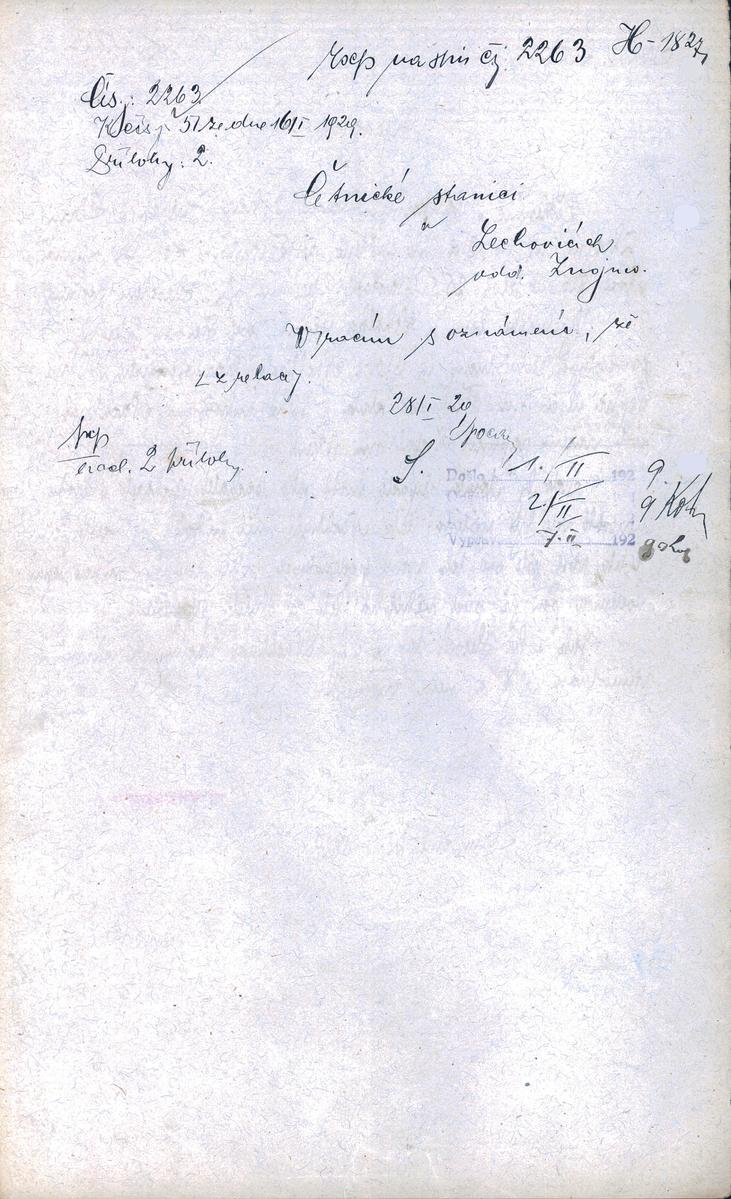 na čj. 2263 H-1827
Čís.: 2263
K čís. 51 ze dne 16/I 1929.
Přílohy: 2.
Četnické stanici
v
Lechovicích
odd. Znojmo.
Vracím s oznámením, že
z relací.
28/I 29
2 přílohy.
S.
Došlo 1./II 192 9.
2./II 9 Koh
Vyprav 7.II 192